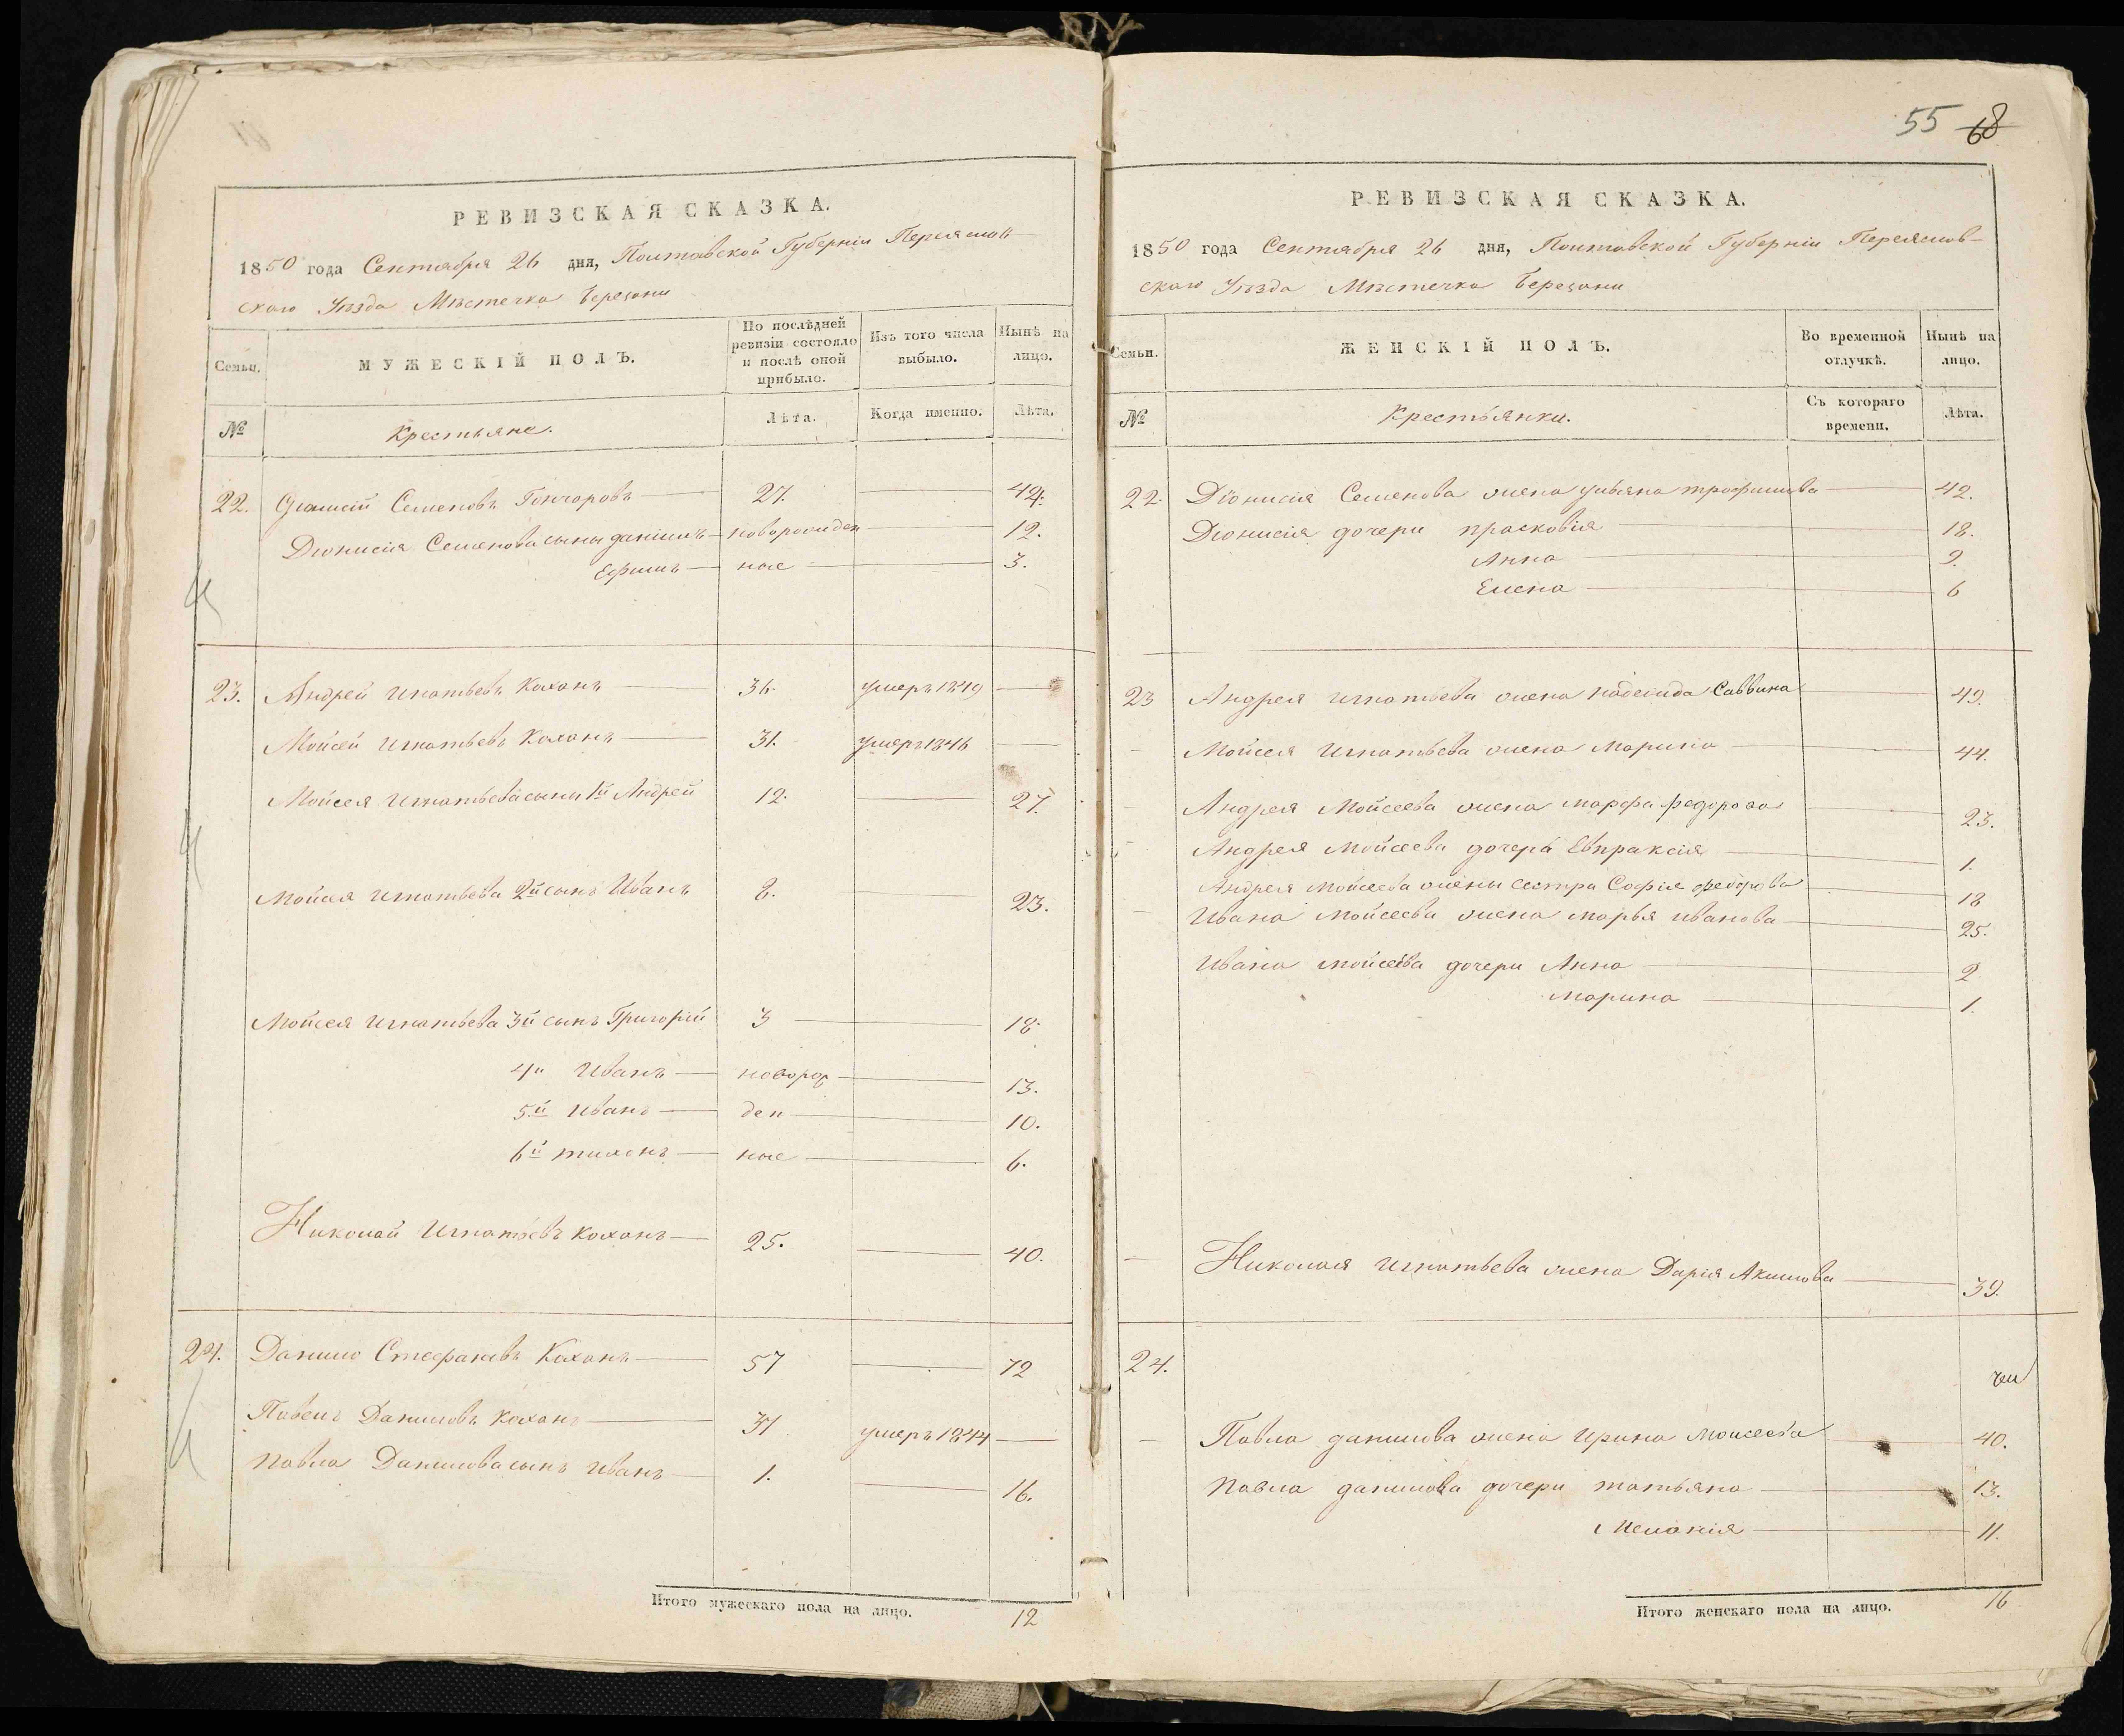 РЕВИЗСКАЯ СКАЗКА.
1850 года Сентября 26 дня, Полтавской Губерніи Переяслов-
скаго Уѣзда Мѣстечка Березани
Семьи.
МУЖЕСКІЙ ПОЛЪ.
По послѣдней ревизіи состояло и послѣ оной прибыло.
Изъ того числа выбыло.
Нынѣ на лицо.
№
Крестьяне.
Лѣта.
Когда именно.
Лѣта.
22. Діонисій Семеновъ Гончаровъ 27. 42.
Дионисія Семенова сыны Даніилъ новорожден 12.
Ефимъ ные 3.
23. Андрей Игнатьевъ Каханъ 36. умеръ 1849
Мойсей Игнатьевъ Каханъ 31. умеръ 1846
Мойсея Игнатьева сыны 1й Андрей 12. 27.
Мойсея Игнатьева 2й сынъ Иванъ 8. 23.
Мойсея Игнатьева 3й сынъ Григорій 3 18.
4й Иванъ новорож 13.
5й Иванъ ден 10.
6й Тихонъ ные 6.
Николай Игнатьевъ Каханъ 25. 40.
24. Данило Стефановъ Каханъ 57 72
Павелъ Даниловъ Каханъ 31 умеръ 1844
Павла Данилова сынъ Иванъ 1. 16.
Итого мужескаго пола на лицо. 12
55 68
РЕВИЗСКАЯ СКАЗКА.
1850 года Сентября 26 дня, Полтавской Губерніи Переяслов-
скаго Уѣзда Мѣстечка Березани
Семьи.
ЖЕНСКІЙ ПОЛЪ.
Во временной отлучкѣ.
Нынѣ на лицо.
№
Крестьянки.
Съ котораго времени.
Лѣта.
22. Діонисія Семенова жена Ульяна Трофимова 42.
Дионисія дочери Прасковія 18.
Анна 9.
Елена 6
23 Андрея Игнатьева жена Надежда Саввина 49.
Мойсея Игнатьева жена Марина 44.
Андрея Мойсеева жена Марфа Федорова 23.
Андрея Мойсеева дочерь Евпраксія 1.
Андрея Мойсеева жены сестра Софія Федорова 18
Ивана Мойсеева жена Марья Иванова 25.
Ивана Мойсеева дочери Анна 2
Марина 1.
Николая Игнатьева жена Дарія Акимова 39.
24.
Павла Данилова жена Ирина Моисеева 40.
Павла Данилова дочери Татьяна 13.
Меланія 11.
Итого женскаго пола на лицо. 16